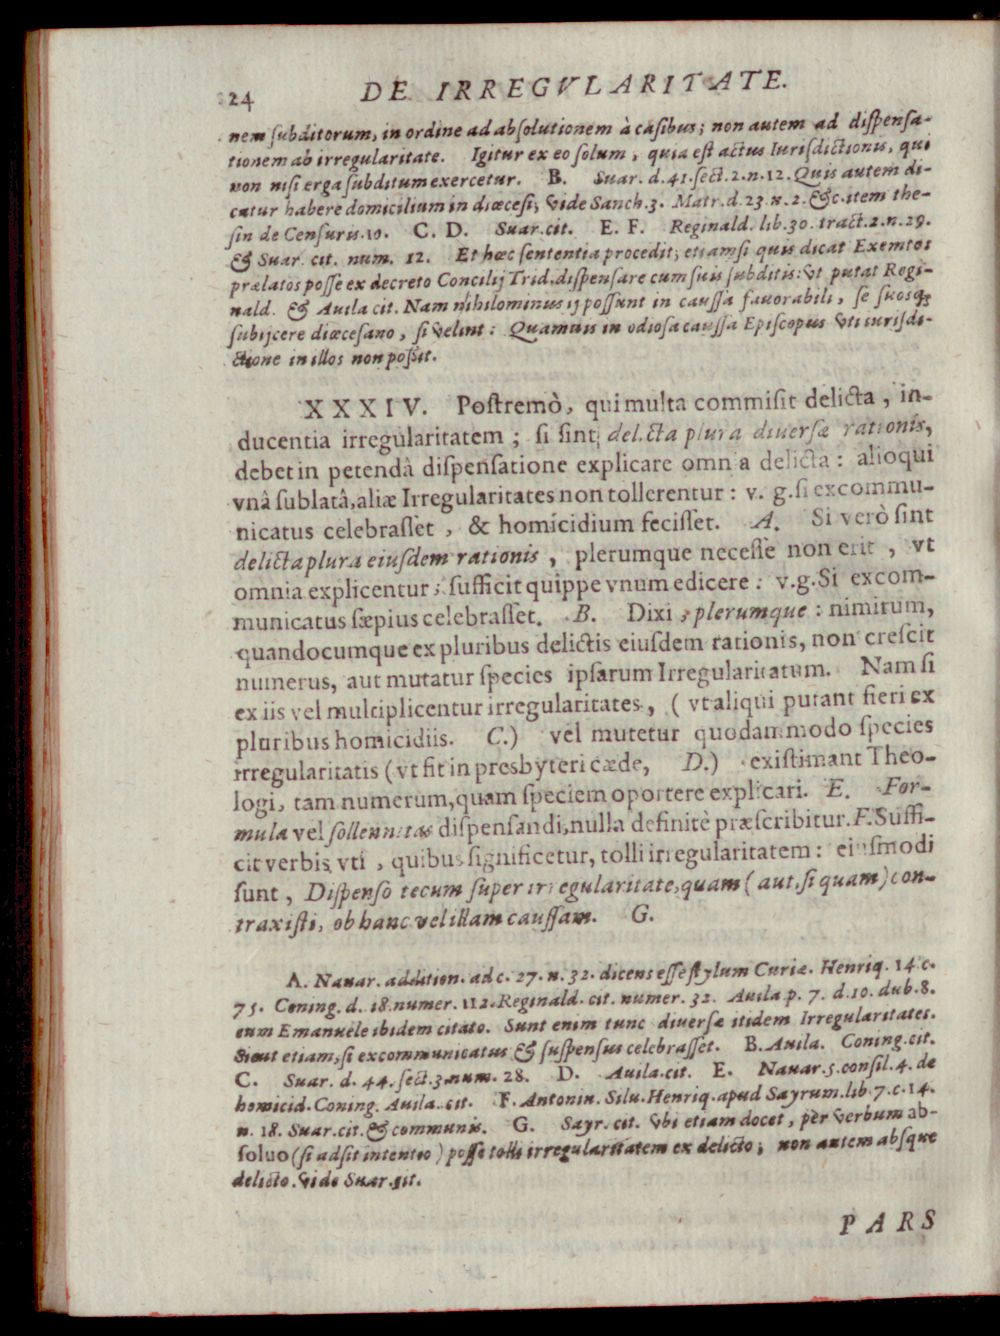 24 DE IRREGVLARITATE.
nem ſubditorum, in ordine ad abſolutionem à caſibus; non autem ad diſpenſa-
tionem ab irregularitate. Igitur ex eo ſolum, quia eſt actus Iuriſdictionis, qui
non niſi erga ſubditum exercetur. B. Suar. d. 41. ſect. 2. n. 12. Quis autem di-
catur habere domicilium in diœceſi; vide Sanch. 3. Matr. d. 23. n. 2. &c. item the-
ſin de Cenſuris. 10. C. D. Suar. cit. E. F. Reginald. lib. 30. tract. 2. n. 29.
& Suar. cit. num. 12. Et hæc ſententia procedit; etiamſi quis dicat Exemtos
prælatos poſſe ex decreto Concilij Trid. diſpenſare cum ſuis ſubditis: vt putat Regi-
nald. & Auila cit. Nam nihilominus ij poſſunt in cauſſa fauorabili, ſe ſuosq;
ſubijcere diœceſano, ſi velint: Quamuis in odioſa cauſſa Epiſcopus vti iuriſdi-
ctione in illos non poſſit.
XXXIV. Poſtremò, qui multa commiſit delicta, in-
ducentia irregularitatem; ſi ſint delicta plura diuerſæ rationis,
debet in petendâ diſpenſatione explicare omnia delicta: alioqui
vnâ ſublatâ, aliæ Irregularitates non tollerentur: v. g. ſi excommu-
nicatus celebraſſet, & homicidium feciſſet. A. Si verò ſint
delicta plura eiuſdem rationis, plerumque neceſſe non erit, vt
omnia explicentur; ſufficit quippe vnum edicere: v. g. Si excom-
municatus ſæpius celebraſſet. B. Dixi; plerumque: nimirum,
quandocumque ex pluribus delictis eiuſdem rationis, non creſcit
numerus, aut mutatur ſpecies ipſarum Irregularitatum. Nam ſi
ex iis vel multiplicentur irregularitates, (vt aliqui putant fieri ex
pluribus homicidiis. C.) vel mutetur quodammodo ſpecies
irregularitatis (vt fit in presbyteri cæde, D.) exiſtimant Theo-
logi, tam numerum, quam ſpeciem oportere explicari. E. For-
mula vel ſollennitas diſpenſandi, nulla definitè præſcribitur. F. Suffi-
cit verbis vti, quibus ſignificetur, tolli irregularitatem: eiuſmodi
ſunt, Diſpenſo tecum ſuper irregularitate, quam (aut, ſi quam) con-
traxiſti, ob hanc vel illam cauſſam. G.
A. Nauar. addition. ad c. 27. n. 32. dicens eſſe ſtylum Curiæ. Henriq. 14. c.
75. Coning. d. 18. numer. 112. Reginald. cit. numer. 32. Auila p. 7. d. 10. dub. 8.
cum Emanuele ibidem citato. Sunt enim tunc diuerſæ itidem Irregularitates.
Sicut etiam, ſi excommunicatus & ſuſpenſus celebraſſet. B. Auila. Coning. cit.
C. Suar. d. 44. ſect. 3. num. 28. D. Auila. cit. E. Nauar. 5. conſil. 4. de
homicid. Coning. Auila. cit. F. Antonin. Silu. Henriq. apud Sayrum. lib. 7. c. 14.
n. 18. Suar. cit. & communis. G. Sayr. cit. vbi etiam docet, per verbum ab-
ſoluo (ſi adſit intentio) poſſe tolli irregularitatem ex delicto; non autem abſque
delicto. vide Suar. cit.
PARS